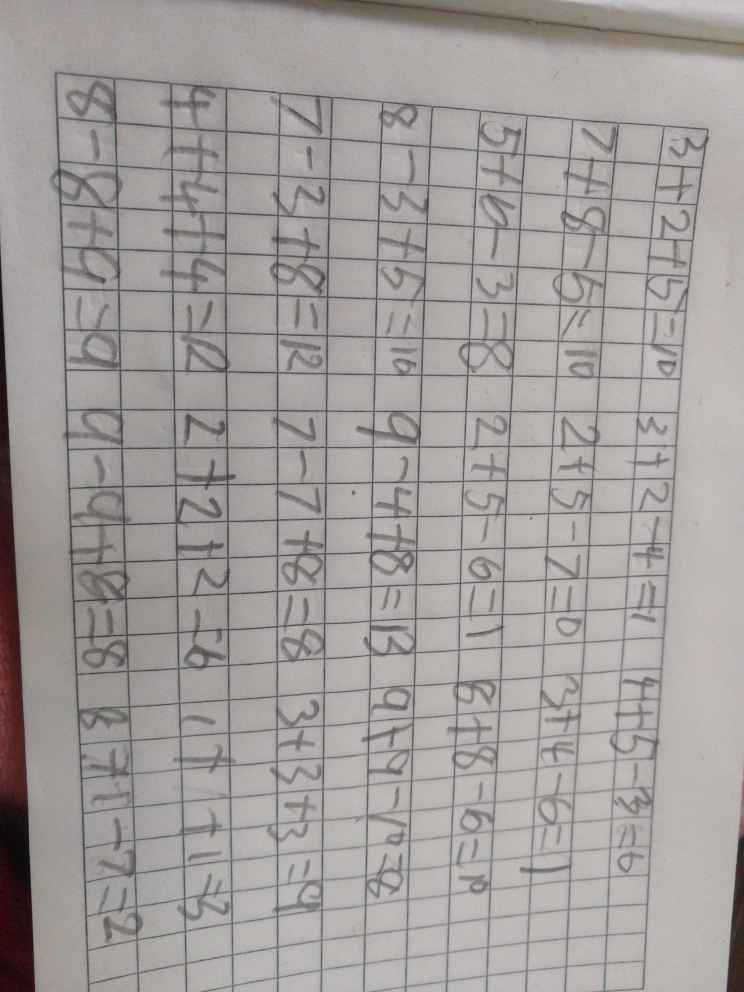 3+2+5=10 3+2-4=1 4+5-3=6
7+8-5=10 2+5-7=0 3+4-6=1
5+6-3=8 2+5-6=1 8+8-6=10
8-3+5=10 9-4+8=13 9+9-10=8
7-3+8=12 7-7+8=8 3+3+3=9
4+4+4=12 2+2+2=6 1+1+1=3
8-8+9=9 9-9+8=8 8+1-7=2